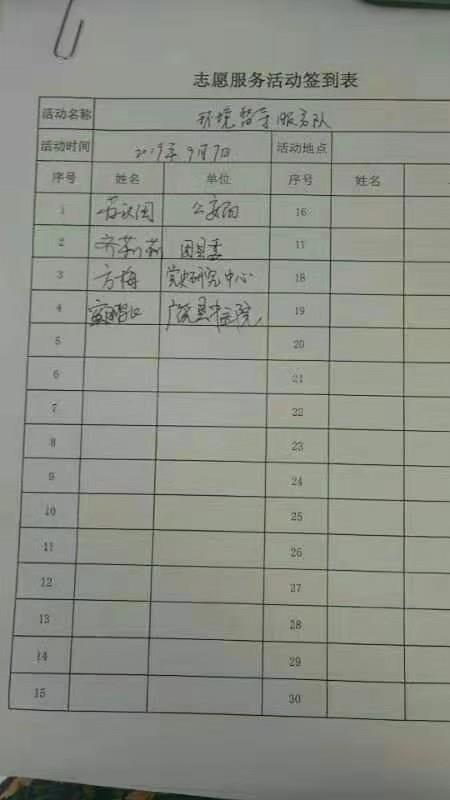 志愿服务活动签到表
活动名称 环境督导服务队
活动时间 2019年9月7日 活动地点
序号 姓名 单位 序号 姓名
1 公安局 16
2 齐莉莉 团县委 17
3 方梅 党史研究中心 18
4 广饶县中医院 19
5 20
6 21
7 22
8 23
9 24
10 25
11 26
12 27
13 28
14 29
15 30